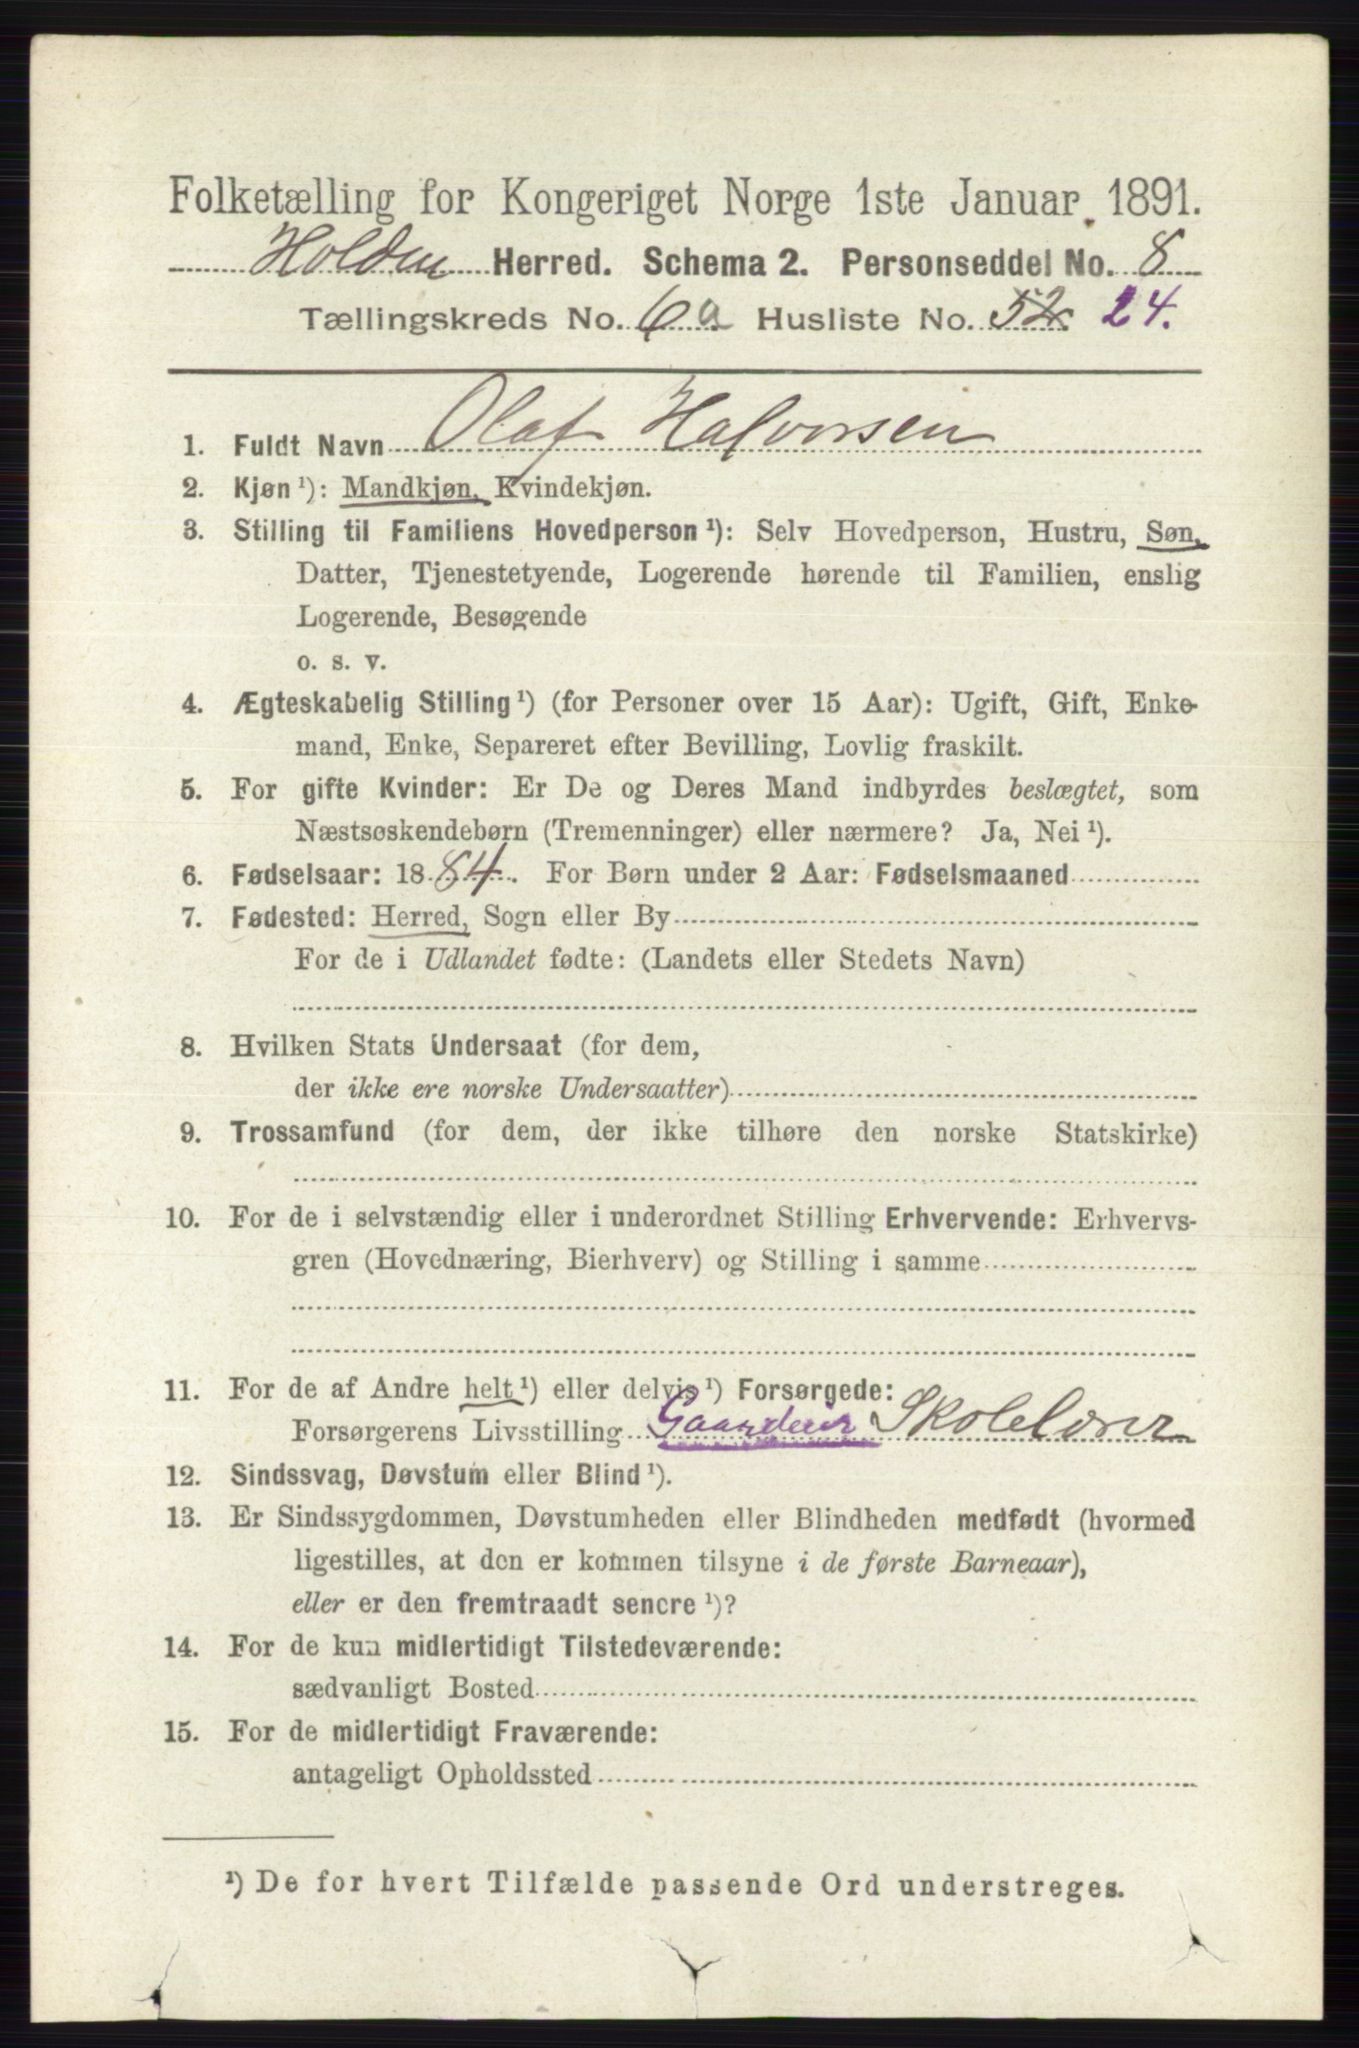 Folketælling for Kongeriget Norge 1ste Januar 1891.
Holden Herred. Schema 2. Personseddel No. 8
Tællingskreds No. 6 a Husliste No. 52. 24.
1. Fuldt Navn Olaf Halvorsen
2. Kjøn ¹): Mandkjøn, Kvindekjøn.
3. Stilling til Familiens Hovedperson ¹): Selv Hovedperson, Hustru, Søn,
Datter, Tjenestetyende, Logerende hørende til Familien, enslig
Logerende, Besøgende
o. s. v.
4. Ægteskabelig Stilling ¹) (for Personer over 15 Aar): Ugift, Gift, Enke-
mand, Enke, Separeret efter Bevilling, Lovlig fraskilt.
5. For gifte Kvinder: Er De og Deres Mand indbyrdes beslægtet, som
Næstsøskendebørn (Tremenninger) eller nærmere? Ja, Nei ¹).
6. Fødselsaar: 1884. For Børn under 2 Aar: Fødselsmaaned
7. Fødested: Herred, Sogn eller By
For de i Udlandet fødte: (Landets eller Stedets Navn)
8. Hvilken Stats Undersaat (for dem,
der ikke ere norske Undersaatter)
9. Trossamfund (for dem, der ikke tilhøre den norske Statskirke)
10. For de i selvstændig eller i underordnet Stilling Erhvervende: Erhvervs-
gren (Hovednæring, Bierhverv) og Stilling i samme
11. For de af Andre helt ¹) eller delvis ¹) Forsørgede:
Forsørgerens Livsstilling Gaardeier Skolelærer
12. Sindssvag, Døvstum eller Blind ¹).
13. Er Sindssygdommen, Døvstumheden eller Blindheden medfødt (hvormed
ligestilles, at den er kommen tilsyne i de første Barneaar),
eller er den fremtraadt senere ¹)?
14. For de kun midlertidigt Tilstedeværende:
sædvanligt Bosted
15. For de midlertidigt Fraværende:
antageligt Opholdssted
¹) De for hvert Tilfælde passende Ord understreges.